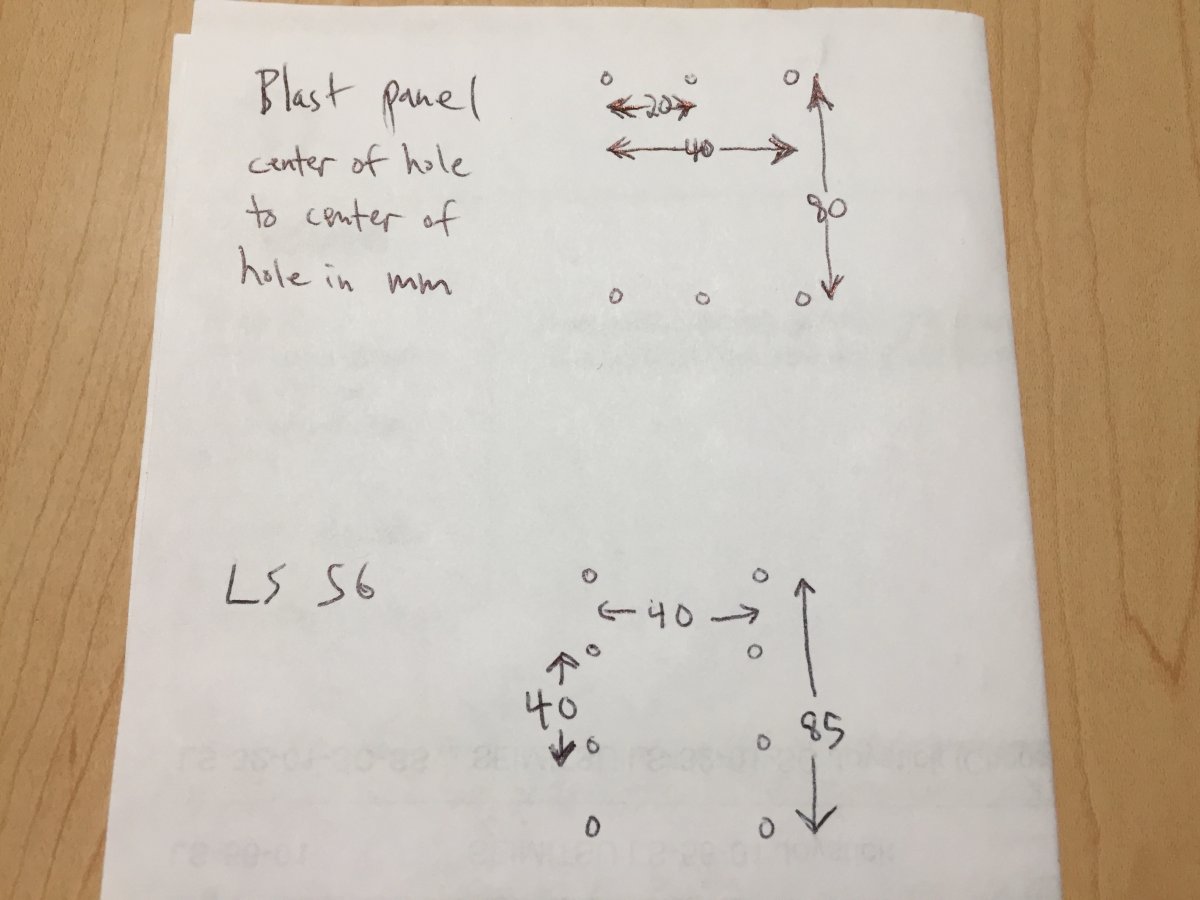 Blast panel
center of hole
to center of
hole in mm
20
40
80
LS S6
40
40
85